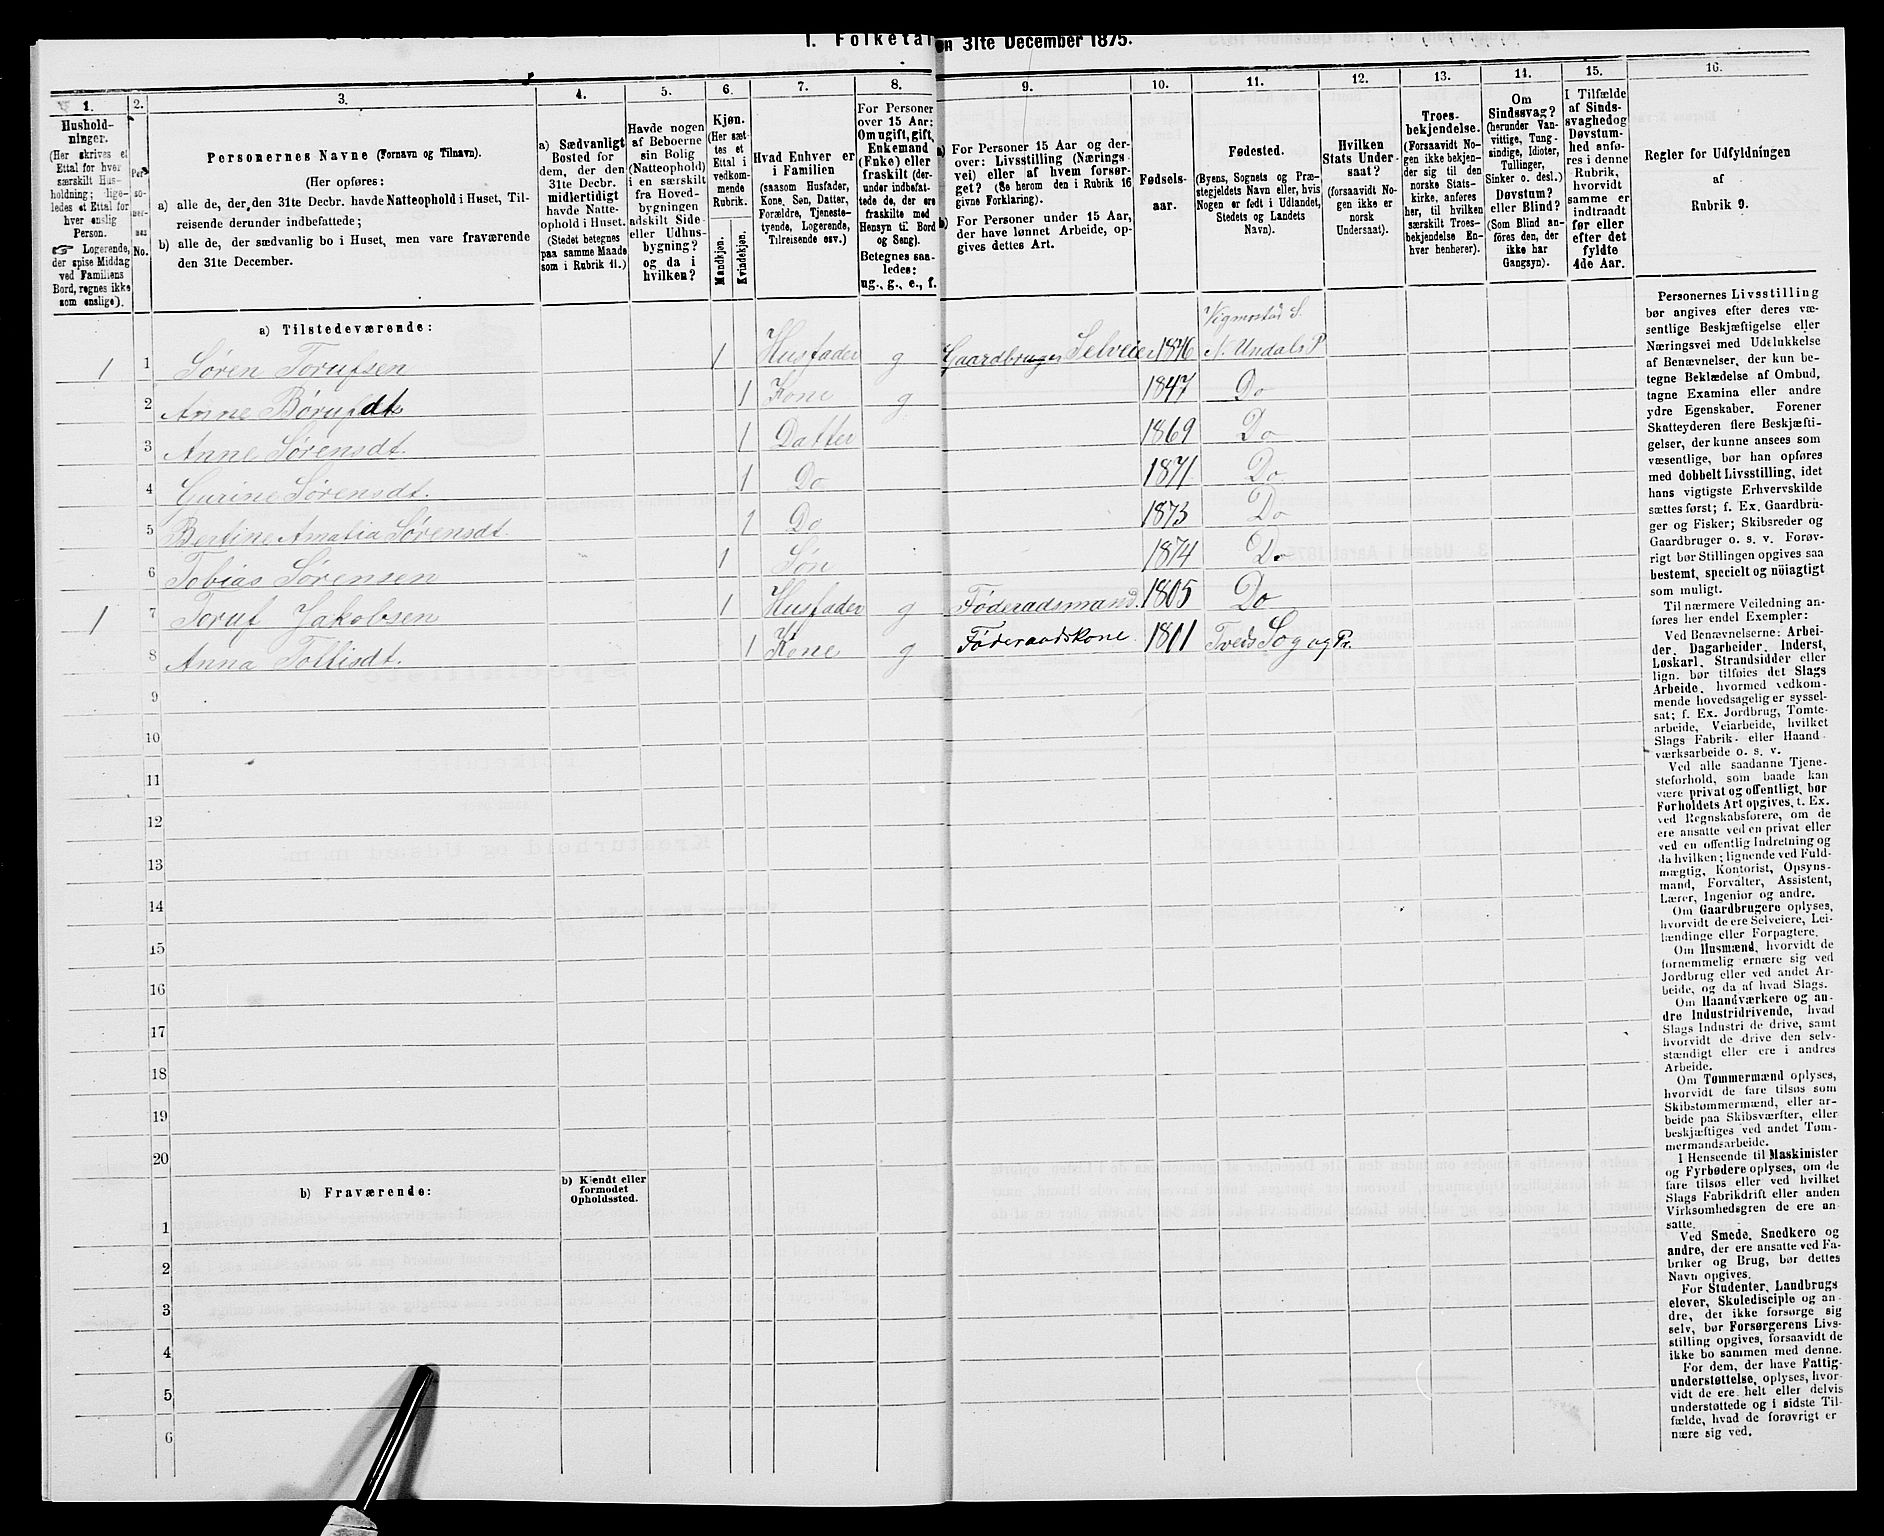 I. Folketal
en 31te December 1875.
1. 2. 3. 4. 5. 6. 7. 8. 9. 10. 11. 12. 13. 14. 15. 16.
Hushold-
ninger.
(Her skrives et
Ettal for hver
særskilt Hus-
holdning; lige-
ledes et Ettal for
hver enslig
Person.
☞ Logerende,
der spise Middag
ved Familiens
Bord, regnes ikke
som enslige).
Per-
so-
ner-
nes
No.
Personernes Navne (Fornavn og Tilnavn).
(Her opføres:
a) alle de, der den 31te Decbr. havde Natteophold i Huset, Til-
reisende derunder indbefattede;
b) alle de, der sædvanlig bo i Huset, men vare fraværende
den 31te December.
a) Sædvanligt
Bosted for
dem, der den
31te Decbr.
midlertidigt
havde Natte-
ophold i Huset.
(Stedet betegnes
paa samme Maade
som i Rubrik 11.)
Havde nogen
af Beboerne
sin Bolig
(Natteophold)
i en særskilt
fra Hoved-
bygningen
adskilt Side-
eller Udhus-
bygning?
og da i
hvilken?
Kjøn.
(Her sæt-
tes et
Ettal i
vedkom-
mende
Rubrik.
Mandkjøn.
Kvindekjøn.
Hvad Enhver er
i Familien
(saasom Husfader,
Kone, Søn, Datter,
Forældre, Tjeneste-
tyende, Logerende,
Tilreisende osv.)
For Personer
over 15 Aar:
Om ugift, gift,
Enkemand
(Enke) eller
fraskilt (der-
under indbefat-
tede de, der ere
fraskilte med
Hensyn til Bord
og Seng).
Betegnes saa-
ledes:
ug., g., e., f.
a) For Personer 15 Aar og der-
over: Livsstilling (Nærings-
vei) eller af hvem forsør-
get? (Se herom den i Rubrik 16
givne Forklaring).
b) For Personer under 15 Aar,
der have lønnet Arbeide, op-
gives dettes Art.
Fødsels-
aar.
Fødested.
(Byens, Sognets og Præ-
stegjeldets Navn eller, hvis
Nogen er født i Udlandet,
Stedets og Landets
Navn).
Hvilken
Stats Under-
saat?
(forsaavidt No-
gen ikke er
norsk
Undersaat).
Troes-
bekjendelse.
(Forsaavidt No-
gen ikke bekjen-
der sig til den
norske Stats-
kirke, anføres
her, til hvilken
særskilt Troes-
bekjendelse En-
hver henhører).
Om
Sindssvag?
(herunder Van-
vittige, Tung-
sindige, Idioter,
Tullinger,
Sinker o. desl.)
Døvstum?
eller Blind?
(Som Blind an-
føres den, der
ikke har
Gangsyn).
I Tilfælde
af Sinds-
svaghed og
Døvstum-
hed anfø-
res i denne
Rubrik,
hvorvidt
samme er
indtraadt
før eller
efter det
fyldte
4de Aar.
Regler for Udfyldningen
af
Rubrik 9.
a) Tilstedeværende:
Vigmostad S.
1 1 Søren Torufsen 1 Husfader g Gaardbruger Selveier 1846 N. Undals P
2 Anne Børufdt 1 Kone g 1847 Do
3 Anne Sørensdt. 1 Datter 1869 Do
4 Gurine Sørensdt. 1 Do 1871 Do
5 Bertine Amalia Sørensdt. 1 Do 1873 Do
6 Tobias Sørensen 1 Søn 1874 Do
1 7 Toruf Jakobsen 1 Husfader g Føderadsmand. 1805 Do
8 Anna Tollisdt. 1 Kone g Føderaadskone 1811 Tveds Sog og Pr.
9
10
11
12
13
14
15
16
17
18
19
20
b) Fraværende:
b) Kjendt eller
formodet
Opholdssted.
1
2
3
4
5
6
Personernes Livsstilling
bør angives efter deres væ-
sentlige Beskjæftigelse eller
Næringsvei med Udelukkelse
af Benævnelser, der kun be-
tegne Beklædelse af Ombud,
tagne Examina eller andre
ydre Egenskaber. Forener
Skatteyderen flere Beskjæfti-
gelser, der kunne ansees som
væsentlige, bør han opføres
med dobbelt Livsstilling, idet
hans vigtigste Erhvervskilde
sættes først; f. Ex. Gaardbru-
ger og Fisker; Skibsreder og
Gaardbruger o. s. v. Forøv-
rigt bør Stillingen opgives saa
bestemt, specielt og nöiagtigt
som muligt.
Til nærmere Veiledning an-
føres her endel Exempler:
Ved Benævnelserne: Arbei-
der, Dagarbeider, Inderst,
Løskarl, Strandsidder eller
lign. bør tilføies det Slags
Arbeide, hvormed vedkom-
mende hovedsagelig er syssel-
sat; f. Ex. Jordbrug, Tomte-
arbeide, Veiarbeide, hvilket
Slags Fabrik- eller Haand-
værksarbeide o. s. v.
Ved alle saadanne Tjene-
steforhold, som baade kan
være privat og offentligt, bør
Forholdets Art opgives, t. Ex.
ved Regnskabsførere, om de
ere ansatte ved en privat eller
ved en offentlig Indretning og
da hvilken; lignende ved Fuld-
mægtig, Kontorist, Opsyns-
mand, Forvalter, Assistent,
Lærer, Ingeniør og andre.
Om Gaardbrugere oplyses,
hvorvidt de ere Selveiere, Lei-
lændinge eller Forpagtere.
Om Husmænd, hvorvidt de
fornemmelig ernære sig ved
Jordbrug eller ved andet Ar-
beide, og da af hvad Slags.
Om Haandværkere og an-
dre Industridrivende, hvad
Slags Industri de drive, samt
hvorvidt de drive den selv-
stændigt eller ere i andres
Arbeide.
Om Tømmermænd oplyses,
hvorvidt de fare tilsøs som
Skibstømmermænd, eller ar-
beide paa Skibsværfter, eller
beskjæftiges ved andet Tøm-
mermandsarbeide.
I Henseende til Maskinister
og Fyrbødere oplyses, om de
fare tilsøs eller ved hvilket
Slags Fabrikdrift eller anden
Virksomhedsgren de ere an-
satte.
Ved Smede, Snedkere og
andre, der ere ansatte ved Fa-
briker og Brug, bør dettes
Navn opgives.
For Studenter, Landbrugs-
elever, Skoledisciple og an-
dre, der ikke forsørge sig
selv, bør Forsørgerens Livs-
stilling opgives, forsaavidt de
ikke bo sammen med denne.
For dem, der have Fattig-
understøttelse, oplyses, hvor-
vidt de ere helt eller delvis
understøttede og i sidste Til-
fælde, hvad de forøvrigt er-
nære sig ved.